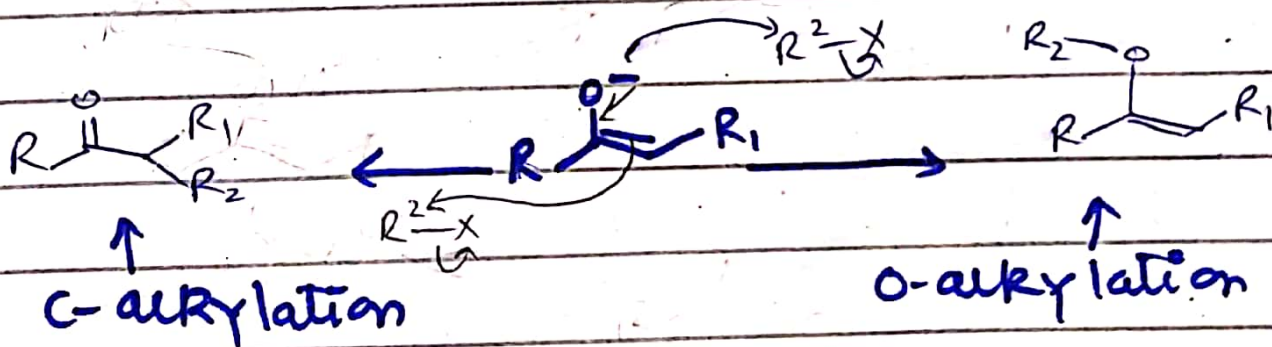 R²—X
R₂ O
O
O⁻
R R₁
R R₁
R R₁
R₂
R²—X
C-alkylation
O-alkylation